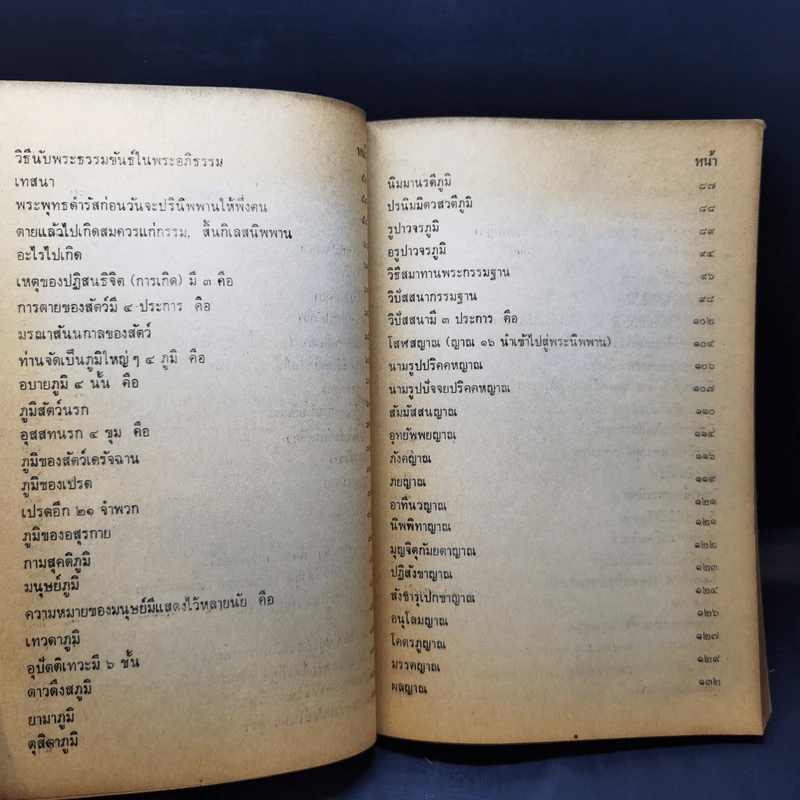 วิธีนับพระธรรมขันธ์ในพระอภิธรรม
เทสนา
พระพุทธดำรัสก่อนวันจะปรินิพพานให้พึ่งตน
ตายแล้วไปเกิดสมควรแก่กรรม, สิ้นกิเลสนิพพาน
อะไรไปเกิด
เหตุของปฏิสนธิจิต (การเกิด) มี ๓ คือ
การตายของสัตว์มี ๔ ประการ คือ
มรณาสันนกาลของสัตว์
ท่านจัดเป็นภูมิใหญ่ๆ ๔ ภูมิ คือ
อบายภูมิ ๔ นั้น คือ
ภูมิสัตว์นรก
อุสสทนรก ๔ ขุม คือ
ภูมิของสัตว์เดรัจฉาน
ภูมิของเปรต
เปรตอีก ๒๑ จำพวก
ภูมิของอสุรกาย
กามสุคติภูมิ
มนุษย์ภูมิ
ความหมายของมนุษย์มีแสดงไว้หลายนัย คือ
เทวดาภูมิ
อุปัตติเทวะมี ๖ ชั้น
ดาวดึงสภูมิ
ยามาภูมิ
ดุสิตาภูมิ
หน้า
นิมมานรดีภูมิ ๘๗
ปรนิมมิตวสวตีภูมิ ๘๘
รูปาวจรภูมิ ๘๙
อรูปาวจรภูมิ ๙๔
วิธีสมาทานพระกรรมฐาน ๙๖
วิปัสสนากรรมฐาน ๙๘
วิปัสสนามี ๓ ประการ คือ ๑๐๒
โสฬสญาณ (ญาณ ๑๖ นำเข้าไปสู่พระนิพพาน) ๑๐๔
นามรูปปริคคหญาณ ๑๐๖
นามรูปปัจจยปริคคหญาณ ๑๐๗
สัมมัสสนญาณ ๑๑๐
อุทยัพพยญาณ ๑๑๔
ภังคญาณ ๑๑๖
ภยญาณ ๑๑๙
อาทีนวญาณ ๑๒๑
นิพพิทาญาณ ๑๒๑
มุญจิตุกัมยตาญาณ ๑๒๒
ปฏิสังขาญาณ ๑๒๓
สังขารุเปกขาญาณ ๑๒๔
อนุโลมญาณ ๑๒๖
โคตรภูญาณ ๑๒๗
มรรคญาณ ๑๒๙
ผลญาณ ๑๓๒